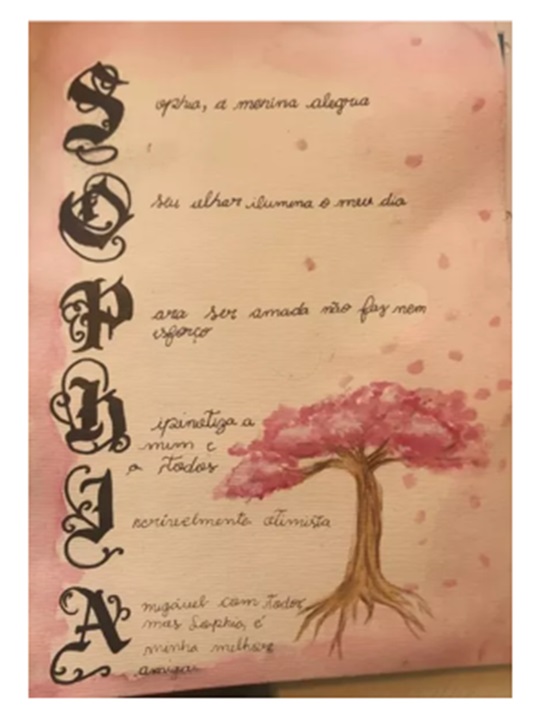 S ophia, a menina alegria
O seu olhar ilumina o meu dia
P ara ser amada não faz nem
esforço
H ipinotiza a
mim e
a todos
I ncrivelmente otimista
A migável com todos
mas Sophia, é
minha melhore
amiga.